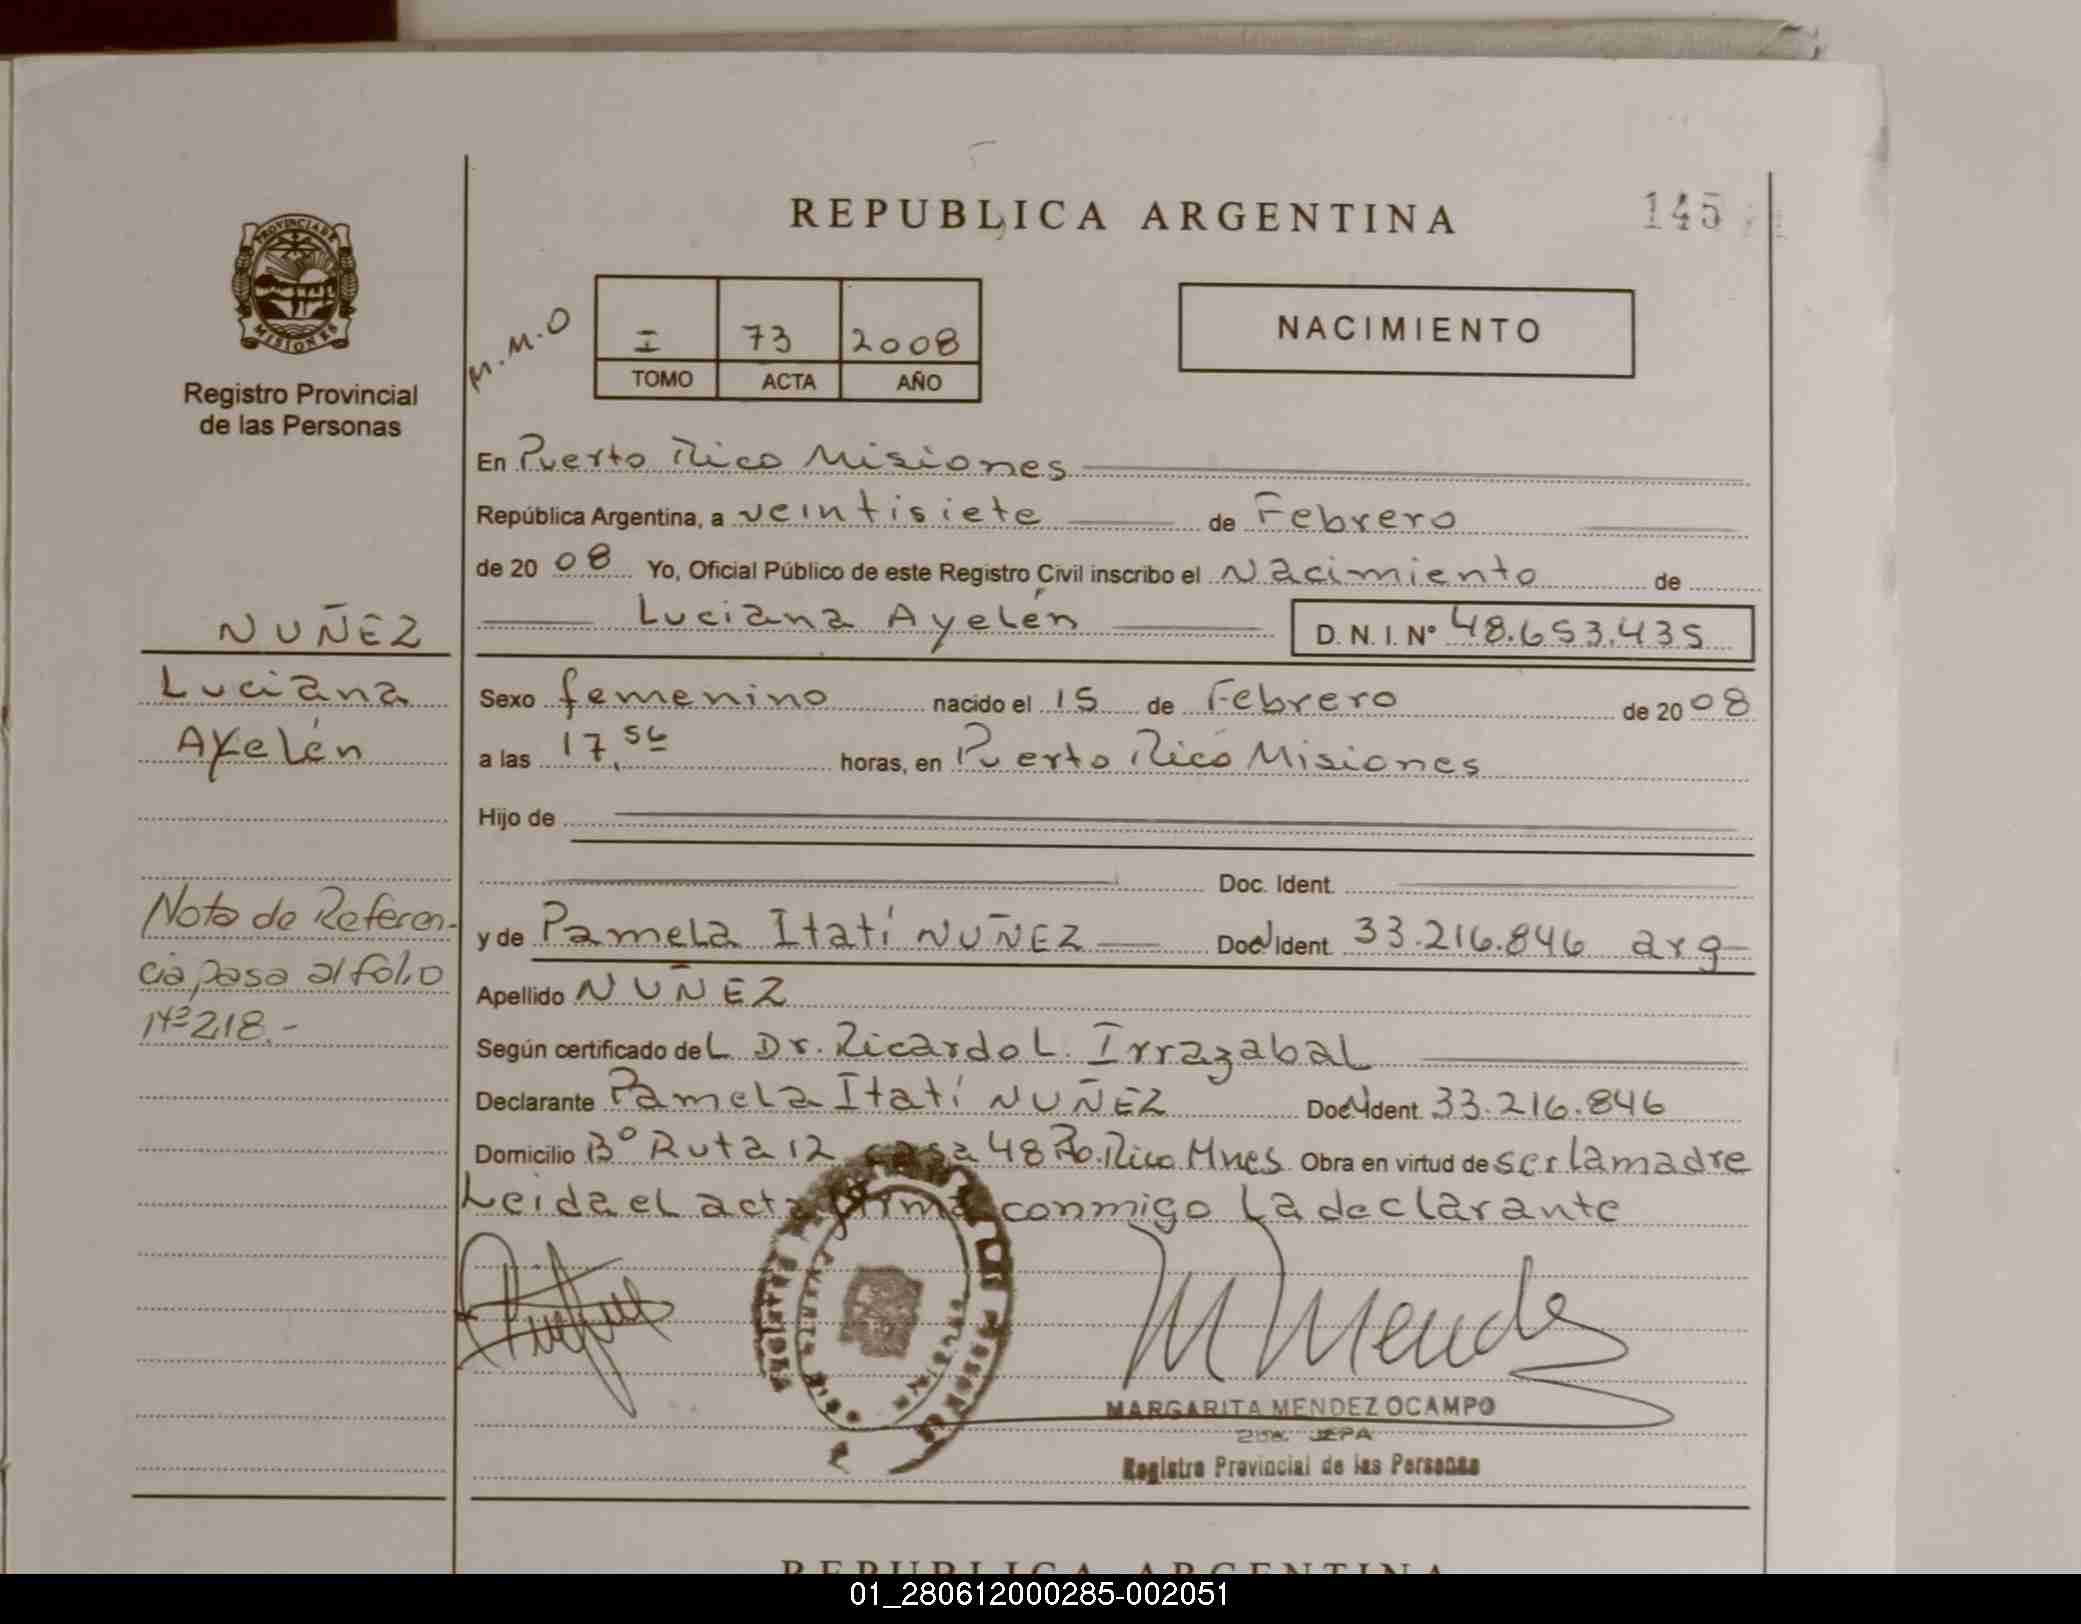 REPUBLICA ARGENTINA
145
PROVINCIA DE
MISIONES
Registro Provincial
de las Personas
M.M.O
I 73 2008
TOMO ACTA AÑO
NACIMIENTO
En Puerto Rico Misiones
República Argentina, a veintisiete de Febrero
de 20 08 Yo, Oficial Público de este Registro Civil inscribo el Nacimiento de
Luciana Ayelén D. N. I. Nº 48.653.435
NUÑEZ
Luciana
Ayelén
Sexo femenino nacido el 15 de Febrero de 20 08
a las 17,56 horas, en Puerto Rico Misiones
Hijo de
Doc. Ident.
Nota de Referen-
cia pasa al folio
Nº 218.-
y de Pamela Itatí NUÑEZ Doc. Ident. 33.216.846 arg
Apellido NUÑEZ
Según certificado del Dr. Ricardo L. Irrazabal
Declarante Pamela Itatí NUÑEZ Doc. Ident. 33.216.846
Domicilio Bº Ruta 12 casa 48 Pto. Rico Mnes Obra en virtud de ser la madre
Leida el acta firma conmigo la declarante
M Mendez
MARGARITA MENDEZ OCAMPO
JEFA
Registro Provincial de las Personas
REPUBLICA ARGENTINA
01_280612000285-002051